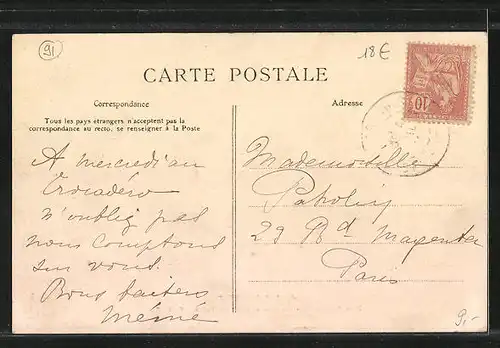 91
18€
CARTE POSTALE
Correspondance
Adresse
Tous les pays étrangers n'acceptent pas la
correspondance au recto, se renseigner à la Poste
A mercredi au
Trocadéro
n'oubliez pas
nous comptons
sur vous.
Bons baisers
Mémé
Mademoiselle
29 Bd Magenta
Paris
10
9,-